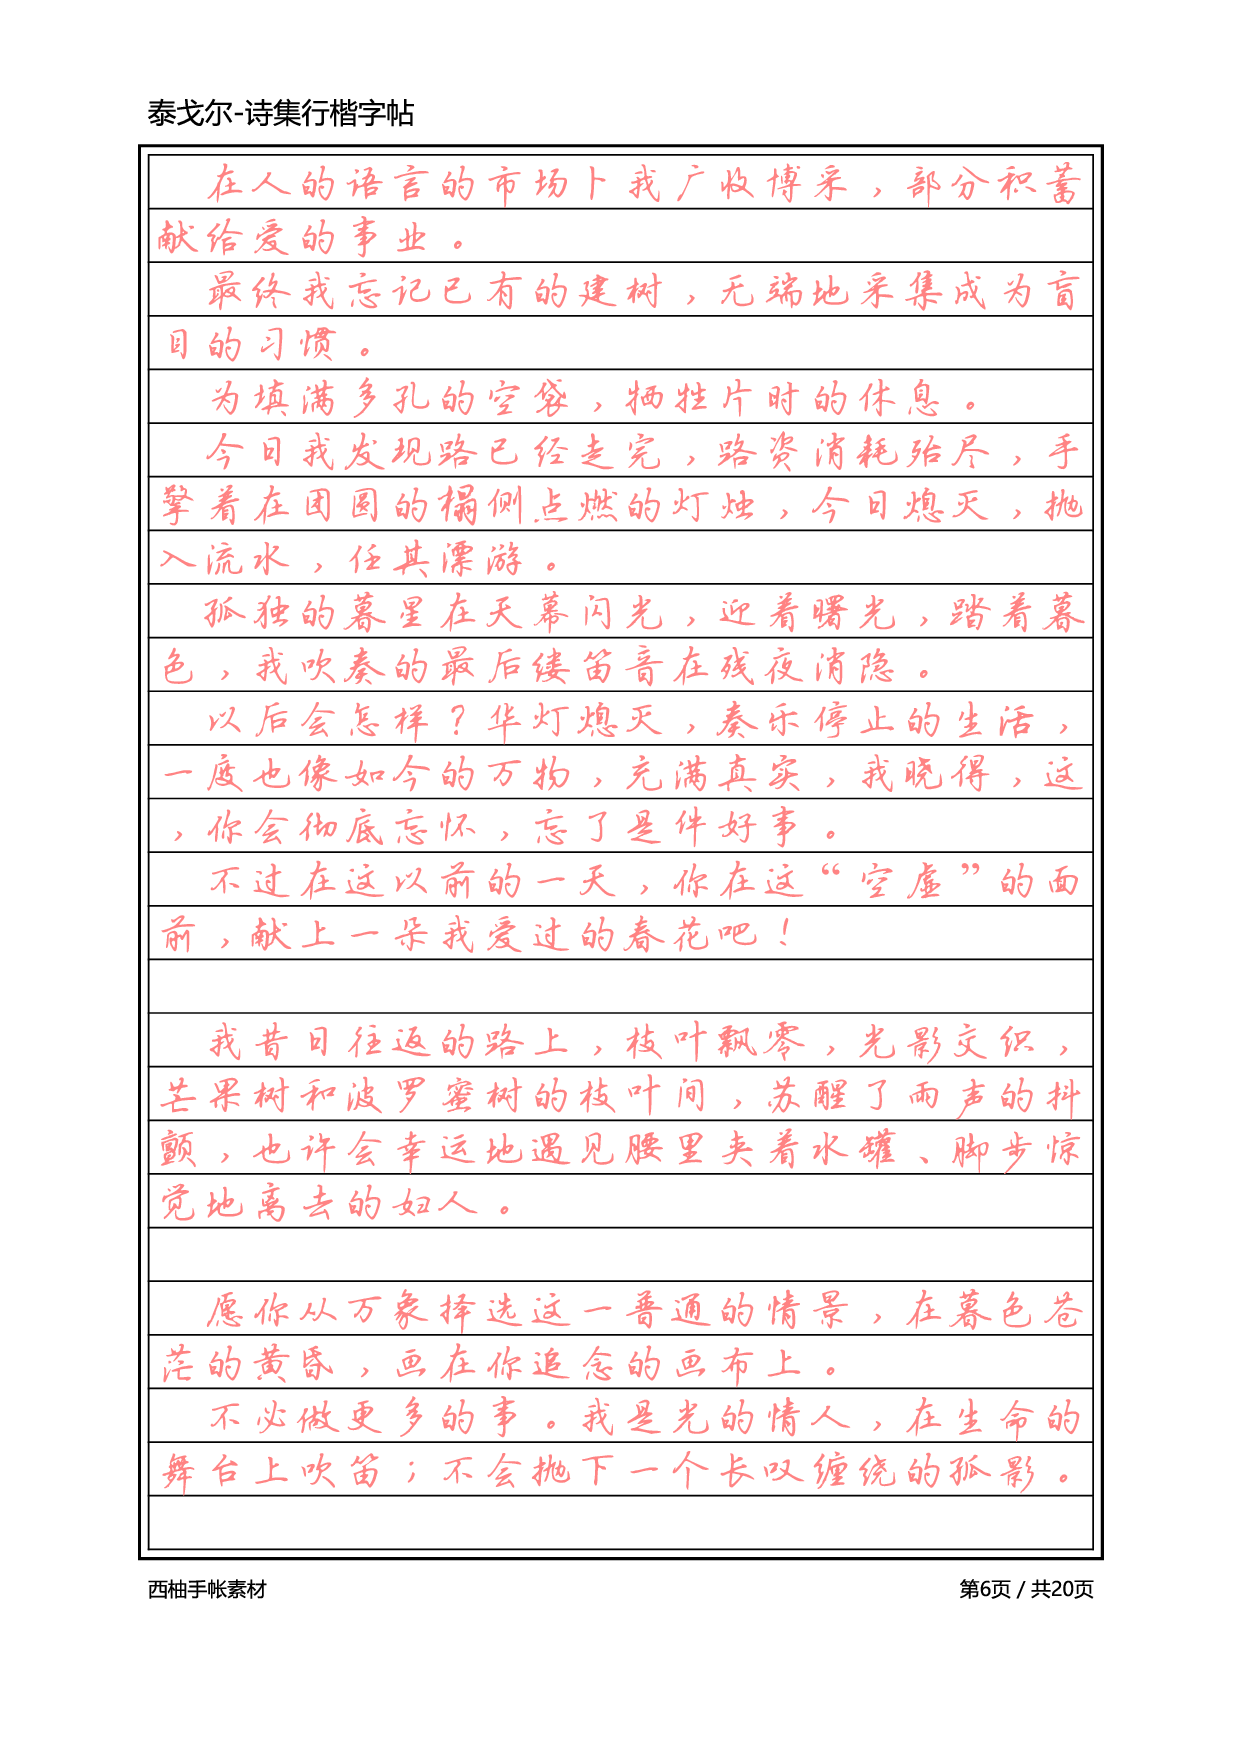 泰戈尔-诗集行楷字帖
在人的语言的市场卜我广收博采，部分积蓄
献给爱的事业。
最终我忘记已有的建树，无端地采集成为盲
目的习惯。
为填满多孔的空袋，牺牲片时的休息。
今日我发现路已经走完，路资消耗殆尽，手
擎着在团圆的榻侧点燃的灯烛，今日熄灭，抛
入流水，任其漂游。
孤独的暮星在天幕闪光，迎着曙光，踏着暮
色，我吹奏的最后缕笛音在残夜消隐。
以后会怎样？华灯熄灭，奏乐停止的生活，
一度也像如今的万物，充满真实，我晓得，这
，你会彻底忘怀，忘了是件好事。
不过在这以前的一天，你在这“空虚”的面
前，献上一朵我爱过的春花吧！
我昔日往返的路上，枝叶飘零，光影交织，
芒果树和波罗蜜树的枝叶间，苏醒了雨声的抖
颤，也许会幸运地遇见腰里夹着水罐、脚步惊
觉地离去的妇人。
愿你从万象择选这一普通的情景，在暮色苍
茫的黄昏，画在你追念的画布上。
不必做更多的事。我是光的情人，在生命的
舞台上吹笛；不会抛下一个长叹缠绕的孤影。
西柚手帐素材
第6页 / 共20页